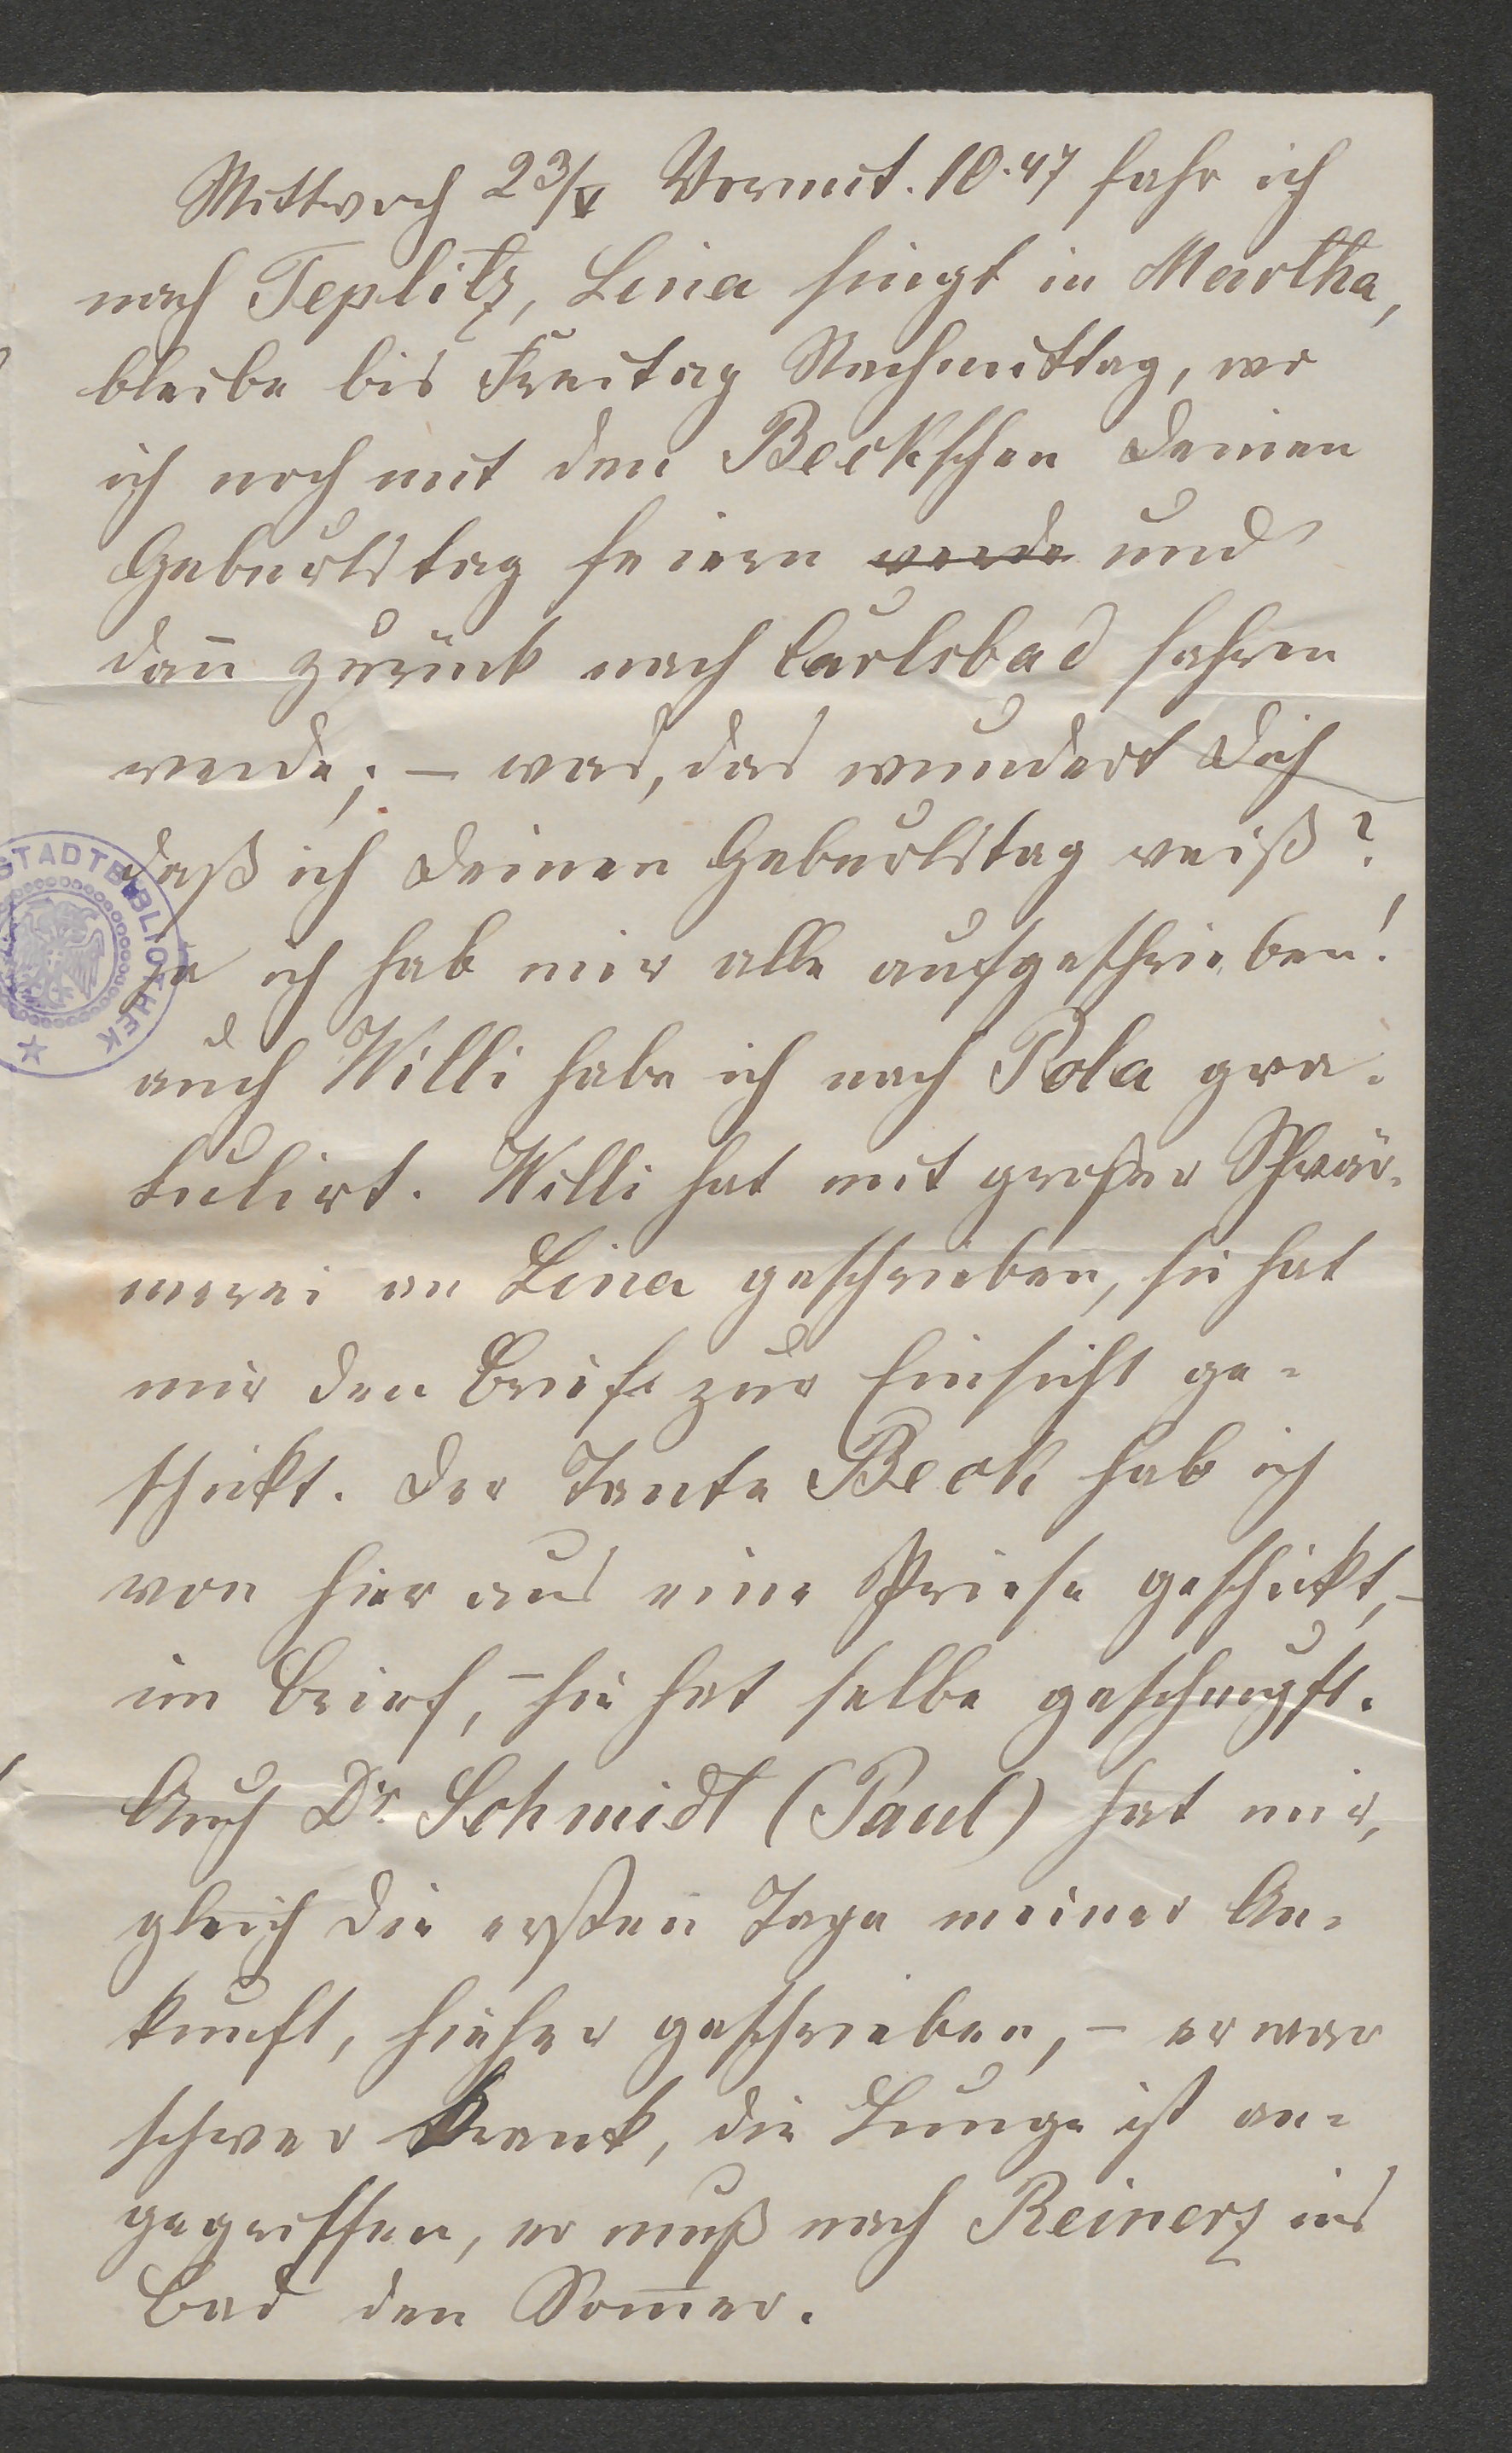 Mittwoch 23/V Vormit. 10.47 fahr ich
nach Teplitz, Lina singt in Martha,
bleibe bis Freitag Nachmittag, wo
ich noch mit den Beckschen Deinen
Geburtstag feiern werde und
dañ zurück nach Carlsbad fahren
werde; – was, das wundert Dich
daß ich Deinen Geburtstag weiß?
ja ich hab mir alle aufgeschrieben!
auch Willi habe ich nach Pola gra-
tulirt. Willi hat mit großer Schwär-
merei an Lina geschrieben, sie hat
mir den Brief zur Einsicht ge-
schickt. Der Tante Beck hab ich
von hier aus eine Priese geschickt, –
im Brief, – sie hat selbe geschnupft.
Auch Dr. Schmidt (Paul) hat mir,
gleich die ersten Tage meiner An-
kunft, hieher geschrieben, – er war
schwer krank, die Lunge ist an-
gegriffen, er muß nach Reinerz ins
Bad den Som̄er.
STADTBIBLIOTHEK